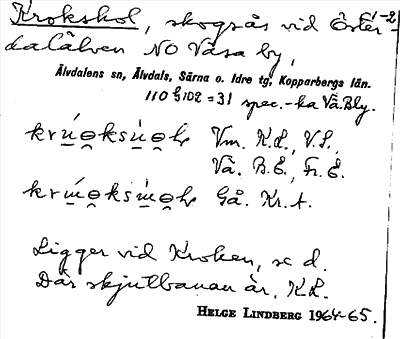 Krokskol, skogsås vid Öster-
dalälven NO Våsa by,
Älvdalens sn, Älvdals, Särna o. Idre tg, Kopparbergs län.
110 § 102 = 31 spec.-ka Vå. Bly.
Vm. K.L., V.L.,
Vå. B.E., Fr. E.
Gå. Kr. A.
Ligger vid Kroken, se d.
Där skjutbanan är. K.L.
HELGE LINDBERG 1964-65.